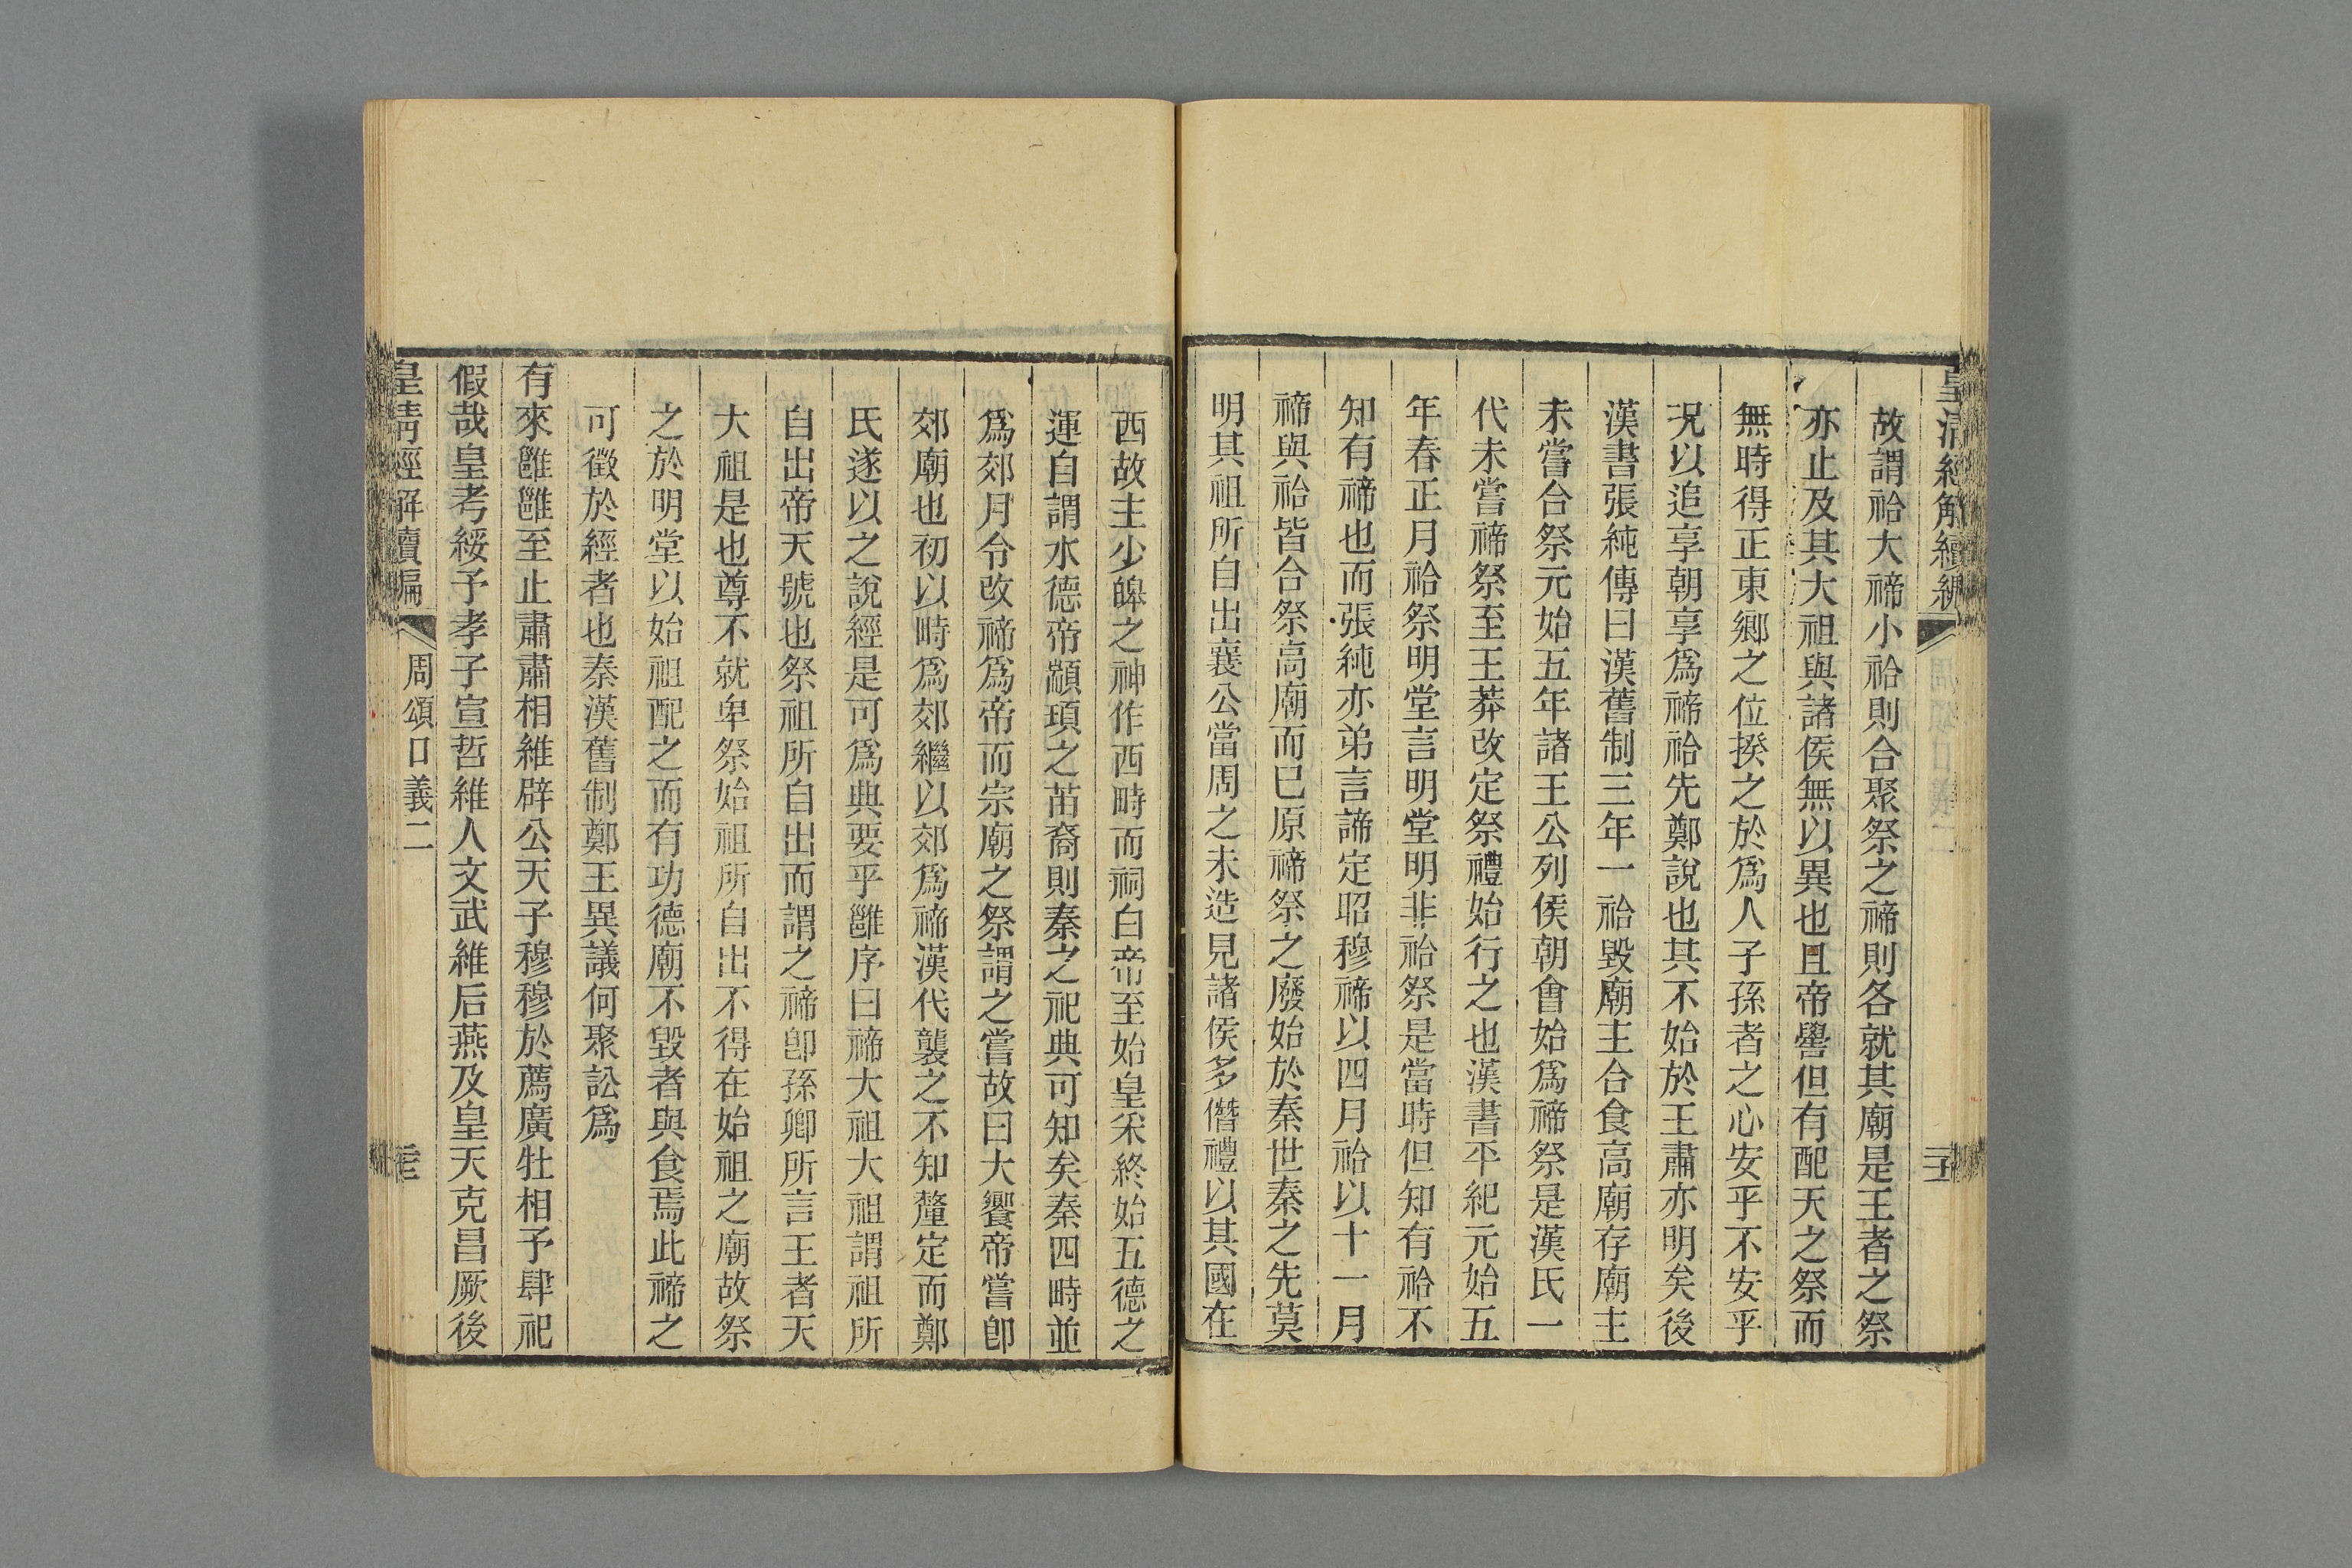 皇清經解續編
故謂祫大禘小祫則合聚祭之禘則各就其廟是王者之祭
亦止及其大祖與諸侯無以異也且帝嚳但有配天之祭而
無時得正東鄉之位揆之於爲人子孫者之心安乎不安乎
況以追享朝享爲禘祫先鄭說也其不始於王肅亦明矣後
漢書張純傳曰漢舊制三年一祫毀廟主合食高廟存廟主
未嘗合祭元始五年諸王公列侯朝會始爲禘祭是漢氏一
代未嘗禘祭至王莽改定祭禮始行之也漢書平紀元始五
年春正月祫祭明堂言明堂明非祫祭是當時但知有祫不
知有禘也而張純亦弟言諦定昭穆禘以四月祫以十一月
禘與祫皆合祭高廟而已原禘祭之廢始於秦世秦之先莫
明其祖所自出襄公當周之末造見諸侯多僭禮以其國在
西故主少皞之神作西畤而祠白帝至始皇采終始五德之
運自謂水德帝顓頊之苗裔則秦之祀典可知矣秦四畤並
爲郊月令改禘爲帝而宗廟之祭謂之嘗故曰大饗帝嘗卽
郊廟也初以畤爲郊繼以郊爲禘漢代襲之不知釐定而鄭
氏遂以之說經是可爲典要乎雝序曰禘大祖大祖謂祖所
自出帝天號也祭祖所自出而謂之禘卽孫卿所言王者天
大祖是也尊不就卑祭始祖所自出不得在始祖之廟故祭
之於明堂以始祖配之而有功德廟不毀者與食焉此禘之
可徵於經者也秦漢舊制鄭王異議何聚訟爲
有來雝雝至止肅肅相維辟公天子穆穆於薦廣牡相予肆祀
假哉皇考綏予孝子宣哲維人文武維后燕及皇天克昌厥後
皇清經解續編
周頌口義二